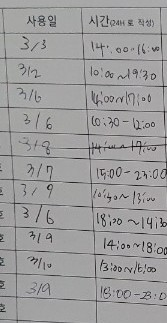 사용일 시간(24H로 작성)
3/3 14:00~16:00
3/2 10:00~19:30
3/6 14:00~17:00
3/6 10:30-12:00
3/8 14:00~17:00
호 3/7 15:00-23:00
호 3/9 10:30~13:00
호 3/6 18:00~14:30
호 3/9 14:00~18:00
호 3/10 13:00~15:00
호 3/9 18:00-23:0
호